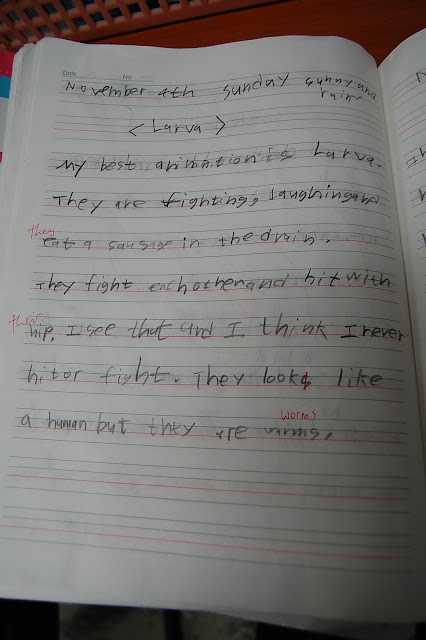 Date No.
November 4th sunday sunny and
rain
< Larva >
My best animation is Larva.
They are fighting, laughing and
they
eat a sausage in the drain.
They fight each other and hit with
their
hip. I see that and I think I never
hit or fight. They looks like
worms
a human but they are warms.